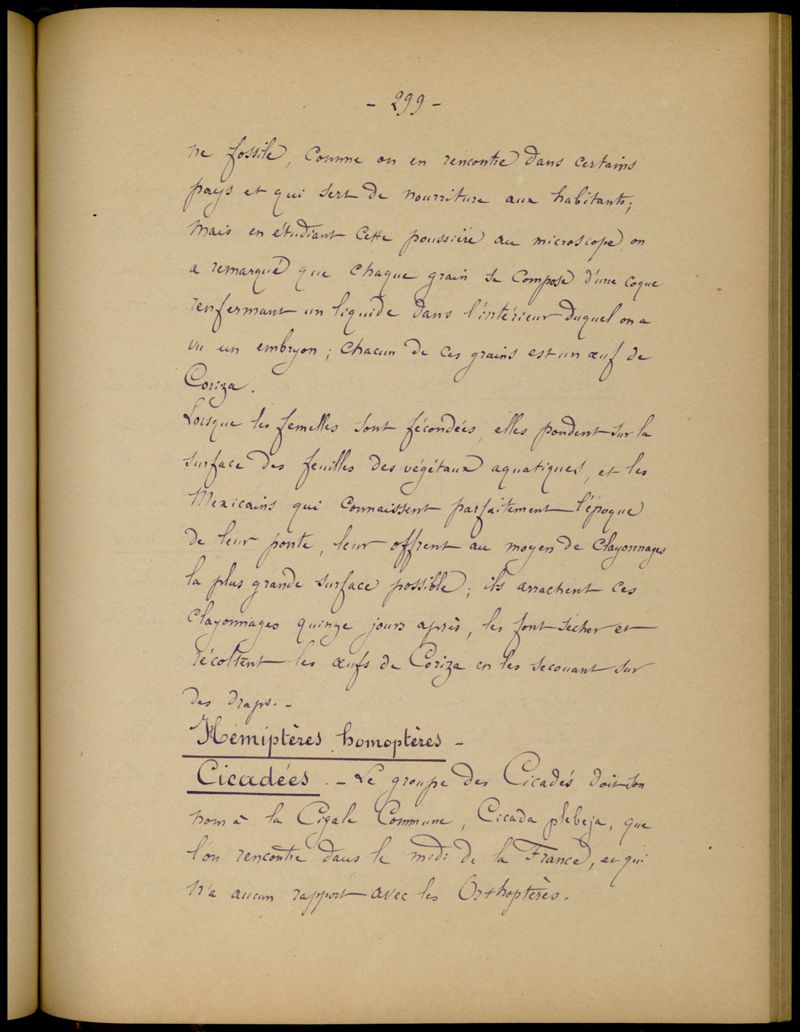 - 299 -
ne fossile, comme on en rencontre dans certains
pays et qui sert de nourriture aux habitants;
mais en étudiant cette poussière au microscope, on
a remarqué que chaque grain se compose d'une coque
renfermant un liquide dans l'intérieur duquel on a
vu un embryon; chacun de ces grains est un œuf de
Coriza.
Lorsque les femelles sont fécondées, elles pondent sur la
surface des feuilles des végétaux aquatiques, et les
Mexicains qui connaissent parfaitement l'époque
de leur ponte, leur offrent au moyen de clayonnages
la plus grande surface possible; ils arrachent ces
clayonnages quinze jours après, les font sécher et
récoltent les œufs de Coriza en les secouant sur
des draps. -
Hémiptères homoptères -
Cicadées. - Le groupe des Cicadés doit son
nom à la Cigale Commune, Cicada plebeja, que
l'on rencontre dans le midi de la France, et qui
n'a aucun rapport avec les Orthoptères.